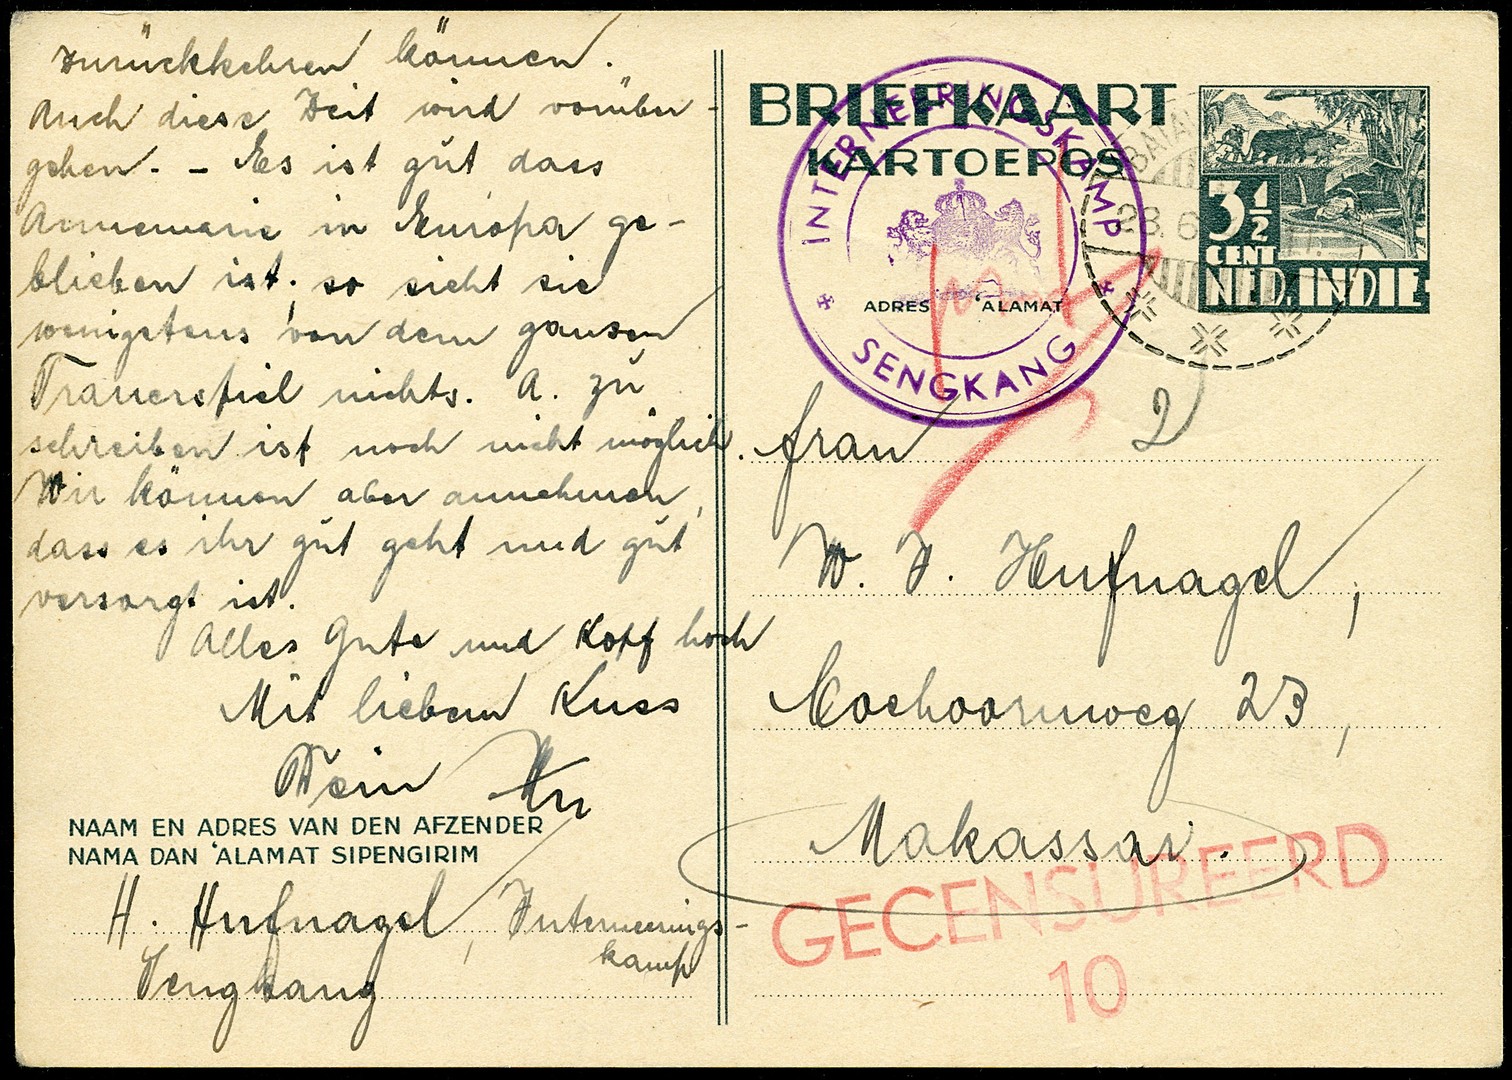 zurückkehren können.
Auch diese Zeit wird vorüber-
gehen. - Es ist gut dass
Annemarie in Europa ge-
blieben ist, so sieht sie
wenigstens von dem ganzen
Trauerspiel nichts. A. zu
schreiben ist noch nicht möglich.
Wir können aber annehmen,
dass es ihr gut geht und gut
versorgt ist.
Alles Gute und Kopf hoch
Mit lieben Kuss
Dein
NAAM EN ADRES VAN DEN AFZENDER
NAMA DAN 'ALAMAT SIPENGIRIM
H. Hufnagel, Interneerings-
kamp
Sengkang
BRIEFKAART
KARTOEPOS
INTERNEERINGSKAMP
SENGKANG
ADRES 'ALAMAT
BATAV
28. 6
3 1/2
CENT
NED. INDIE
2
Frau
W. J. Hufnagel,
Coehoornweg 23,
Makassar.
GECENSUREERD
10